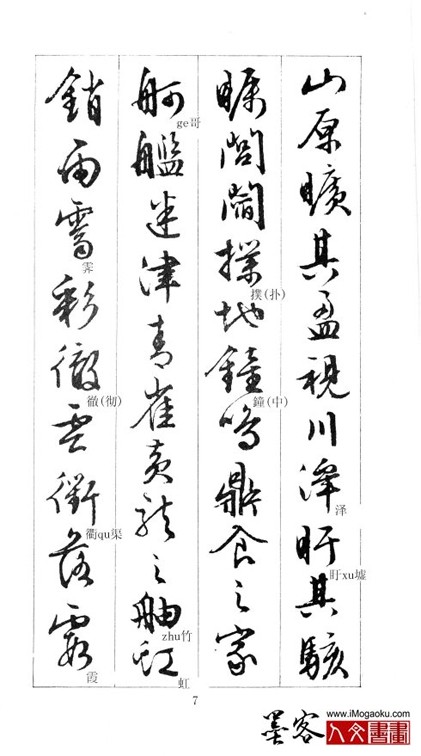 山原曠其盈視川澤盱其駭
泽
盱xu墟
矚閭閻撲地鐘鳴鼎食之家
撲(扑)
鐘(中)
舸艦迷津青雀黃龍之舳虹
ge哥
zhu竹
虹
銷雨霽彩徹雲衢落霞
霁
徹(彻)
衢qu渠
霞
7
墨客
www.iMogaoku.com
人文書畫